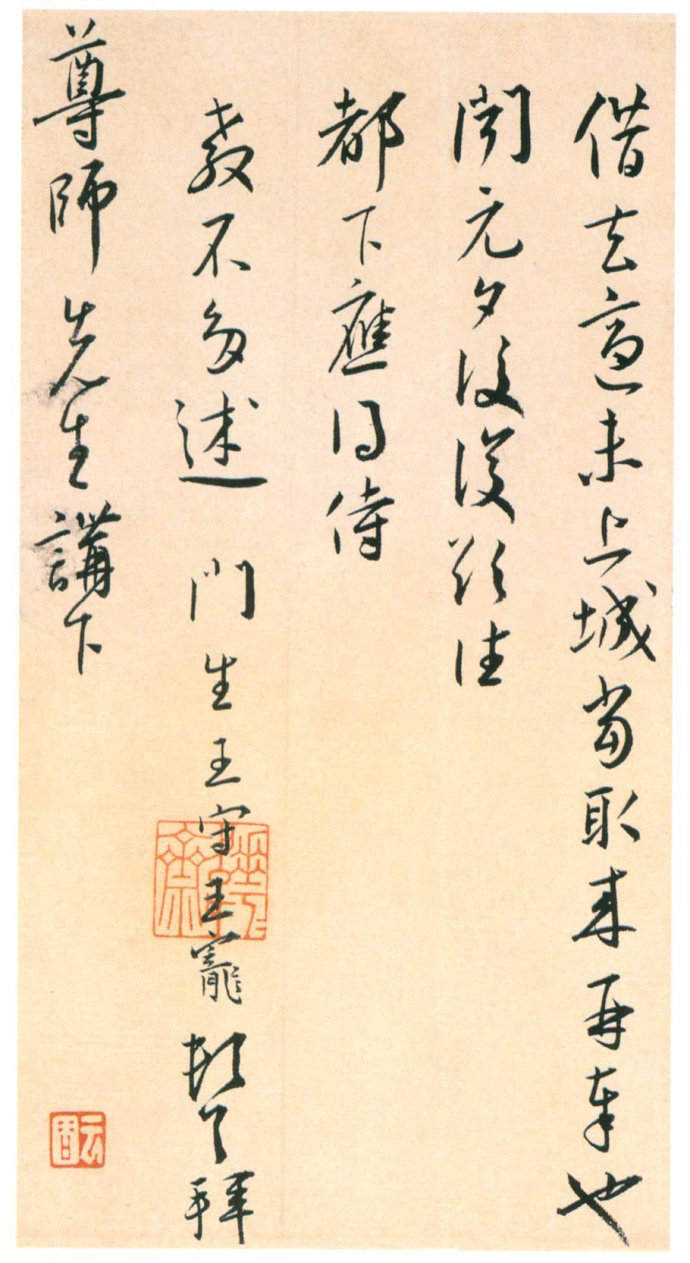 借去適未上城當取來再奉也
聞元夕後復欲往
都下應得侍
教不多述 門生王守王寵頓首拜
尊師先生講下